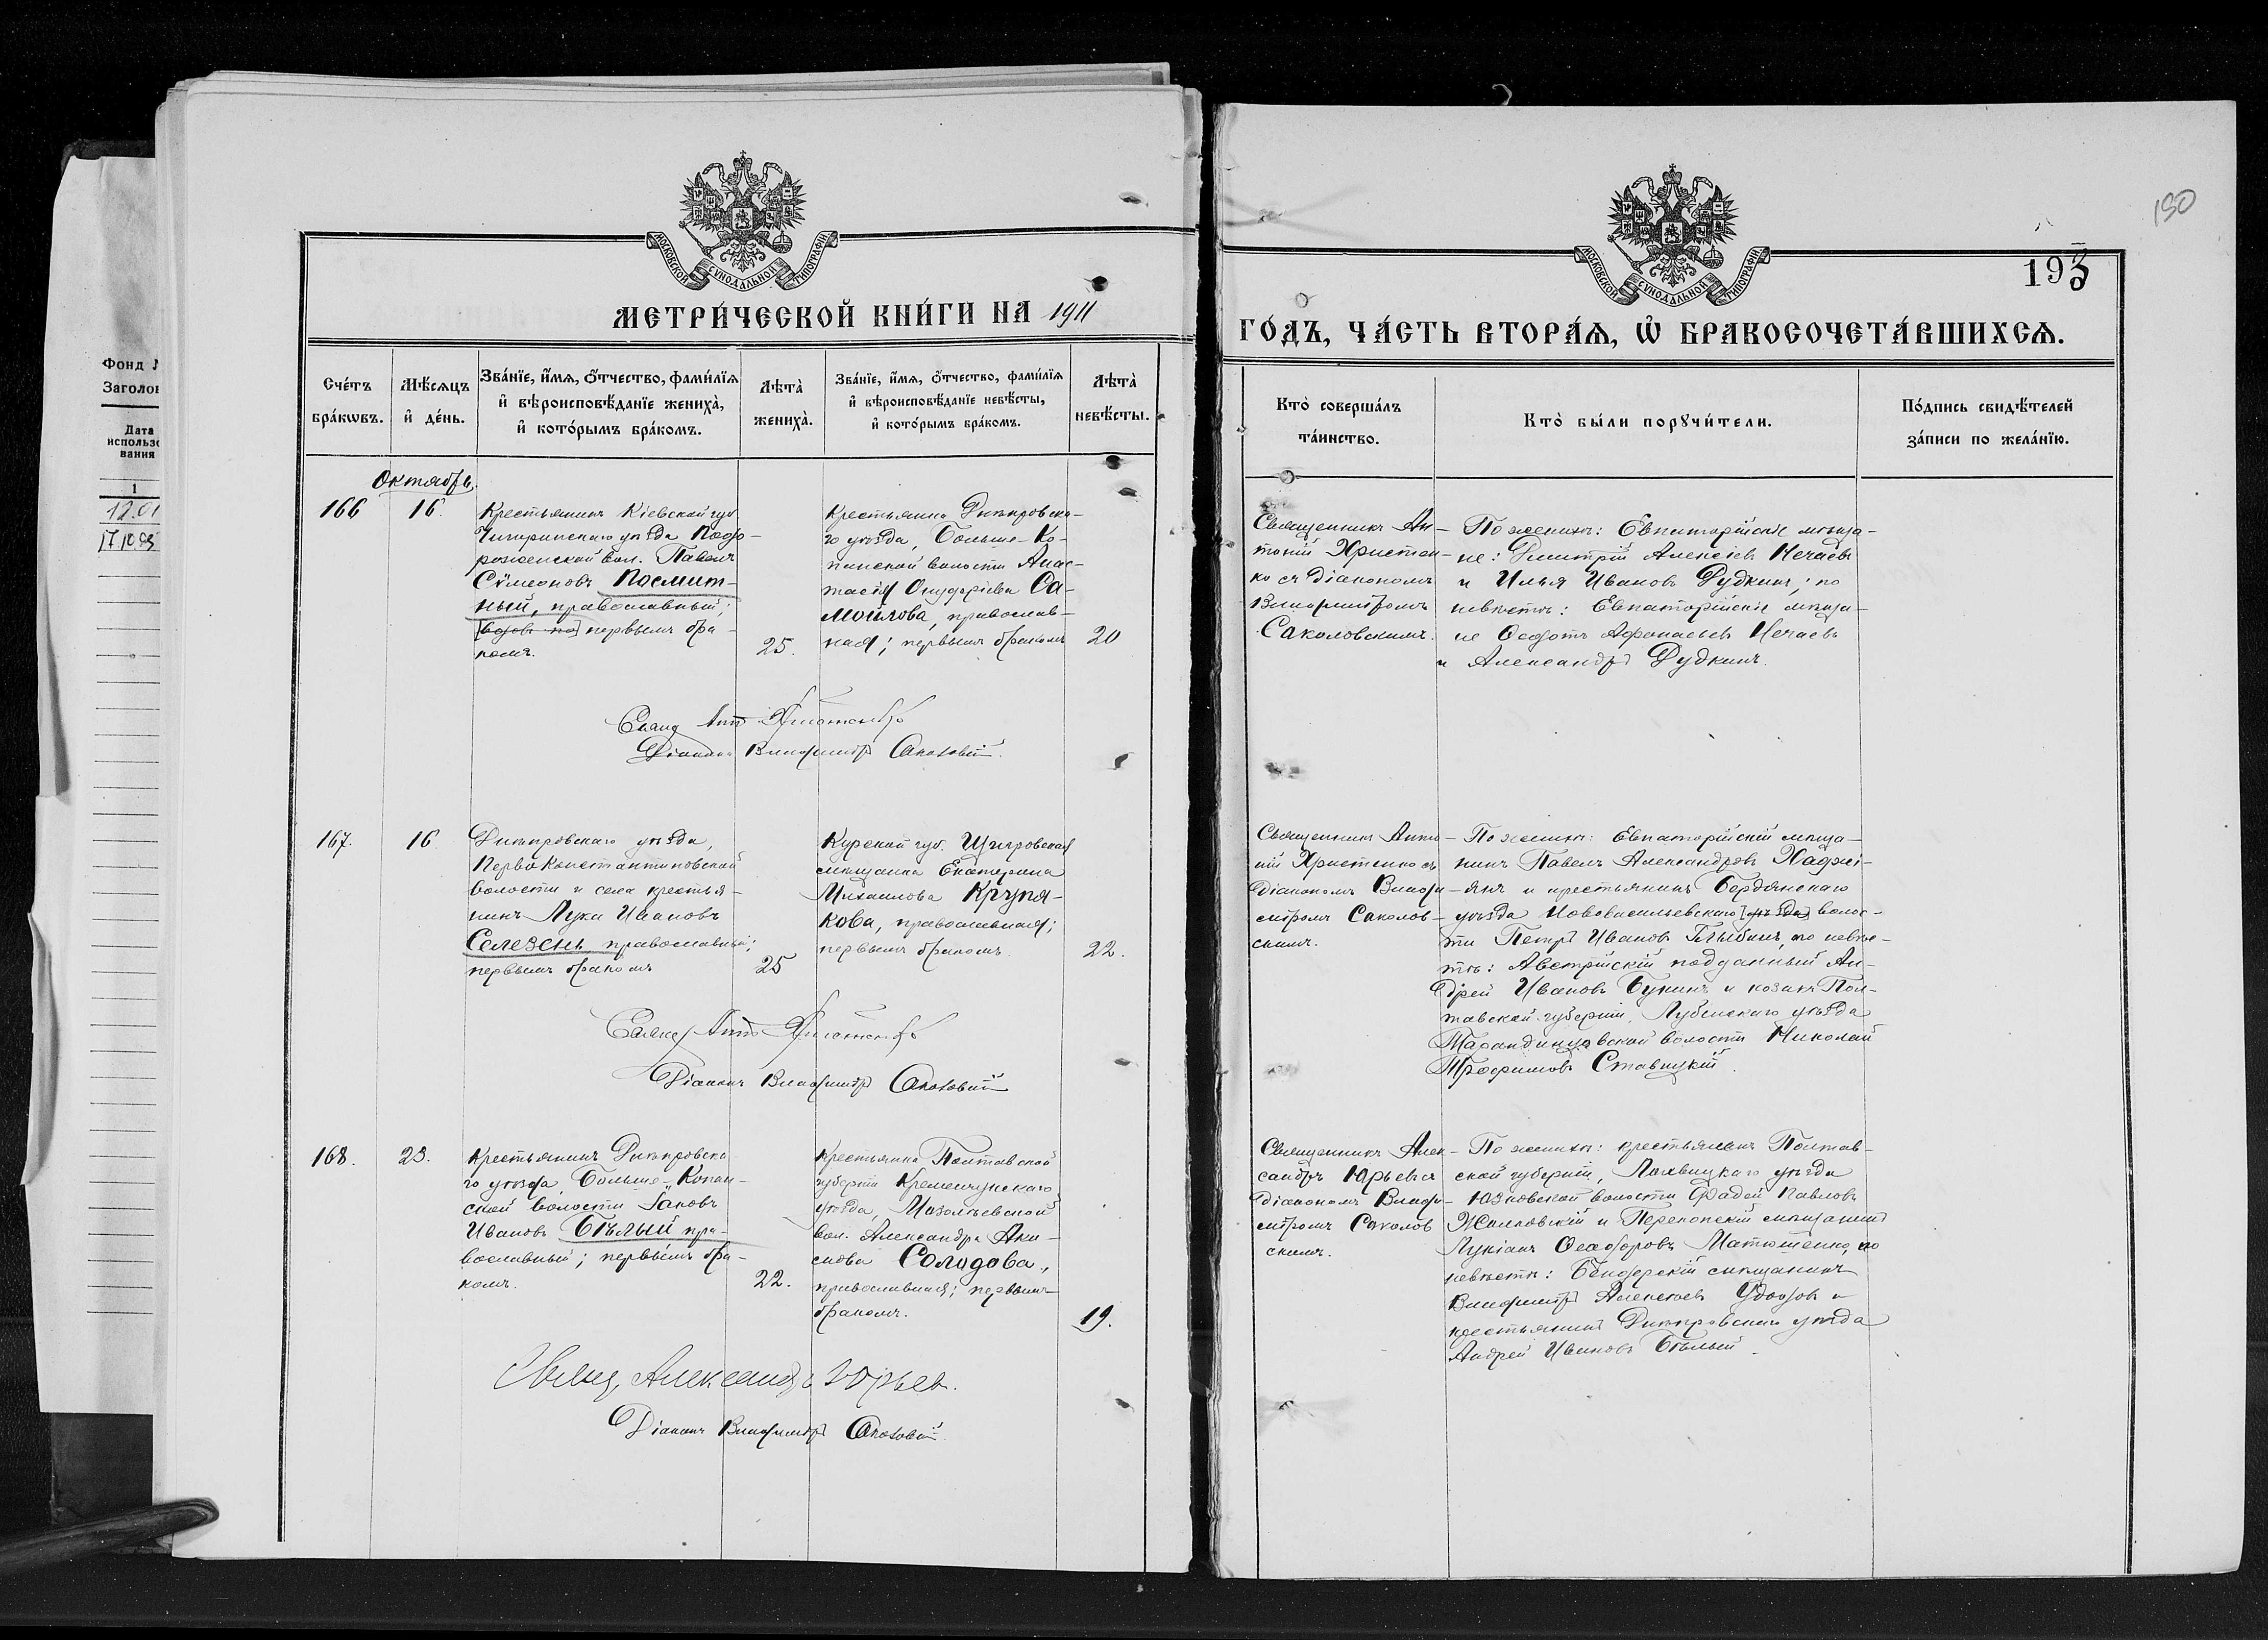 МОСКОВСКОЙ СѴНОДАЛЬНОЙ ТИПОГРАФІИ
МЕТРИ́ЧЕСКОЙ КНИ́ГИ НА 1911
Сче́тъ бра́кωвъ.
Мѣ́сѧцъ и҆ де́нь.
Зва́нїе, и҆́мѧ, ѻ҆́тчество, фами́лїѧ
и҆ вѣроисповѣ́данїе жениха̀,
и҆ кото́рымъ бра́комъ.
Лѣта̀ жениха̀.
Зва́нїе, и҆́мѧ, ѻ҆́тчество, фами́лїѧ
и҆ вѣроисповѣ́данїе невѣ́сты,
и҆ кото́рымъ бра́комъ.
Лѣта̀ невѣ́сты.
Октябрь.
166
16.
Крестьянинъ Кіевской губ.
Чигиринскаго уѣзда
вол. Павелъ
Сѵмеоновъ Посмит-
ный, православный;
первымъ бра-
комъ.
25.
Крестьянка Днѣпровска-
го уѣзда, Больше-Ко-
панской волости Анас-
тасія Онуфріева Са-
мойлова, православ-
ная; первымъ бракомъ
20
Свящ. Ант. Христенко
Діаконъ Владиміръ Соколовскій.
167.
16
Днѣпровскаго уѣзда,
Первоконстантиновской
волости и села крестья-
нинъ Лука Ивановъ
Селезень, православный;
первымъ бракомъ
25
Курской губ. Щигровская
мѣщанка Екатерина
Михаилова Крупя-
кова, православная;
первымъ бракомъ.
22.
Свящ. Ант. Христенко
Діаконъ Владиміръ Соколовскій
168.
23.
Крестьянинъ Днѣпровска
го уѣзда Больше-Копан-
ской волости Іаковъ
Ивановъ Бѣлый пра-
вославный; первымъ бра-
комъ.
22.
Крестьянка Полтавской
губерніи Кременчугскаго
уѣзда,
вол. Александра Аки-
мова Солодова,
православная; первымъ
бракомъ.
19.
Свящ. Александръ Юрьевъ.
Діаконъ Владиміръ Соколовскій.
МОСКОВСКОЙ СѴНОДАЛЬНОЙ ТИПОГРАФІИ
190
193
ГО́ДЪ, ЧА́СТЬ ВТОРА́Ѧ, Ѽ БРАКОСОЧЕТА́ВШИХСѦ.
Кто̀ соверша́лъ та́инство.
Кто̀ бы́ли порꙋчи́тели.
По́дпись свидѣ́телей за́писи по жела́нїю.
Священникъ Ан-
тоній Христен-
ко съ діакономъ
Владиміромъ
Соколовскимъ.
По женихѣ: Евпаторійскіе мѣща-
не: Дмитрій Алексѣевъ Нечаевъ
и Илья Ивановъ Дудкинъ; по
невѣстѣ: Евпаторійскіе мѣща-
не Ѳедотъ Афонасьевъ Нечаевъ
и Александръ Дудкинъ.
Священникъ Анто-
ній Христенко съ
діакономъ Влади-
міромъ Соколов-
скимъ.
По женихѣ: Евпаторійскій мѣща-
нинъ Павелъ Александровъ Хаджи-
янъ и крестьянинъ Бердянскаго
уѣзда Нововасильевскаго [уѣзда] волос-
ти Петръ Ивановъ Глыбинъ, по невѣс-
тѣ: Австрійскій подданный Ан-
дрей Ивановъ Букинъ и козакъ Пол-
тавской губерніи, Лубенскаго уѣзда
Тарандинцовской волости Николай
Трофимовъ Ставицкій.
Священникъ Алек-
сандръ Юрьевъ съ
діакономъ Влади-
міромъ Соколов
скимъ.
По женихѣ: крестьяне: Полтав-
ской губерніи, Лохвицкаго уѣзда
Юзковской волости Фадей Павловъ
Жолковскій и Перекопскій мѣщанинъ
Лукіанъ Ѳеодоровъ Матюшенко, по
невѣстѣ: Бендерскій мѣщанинъ
Владиміръ Алексѣевъ Удодовъ и
крестьянинъ Днѣпровскаго уѣзда
Андрей Ивановъ Бѣлый.
Фонд
Заголо
Дата
использо
вания
1
12.01